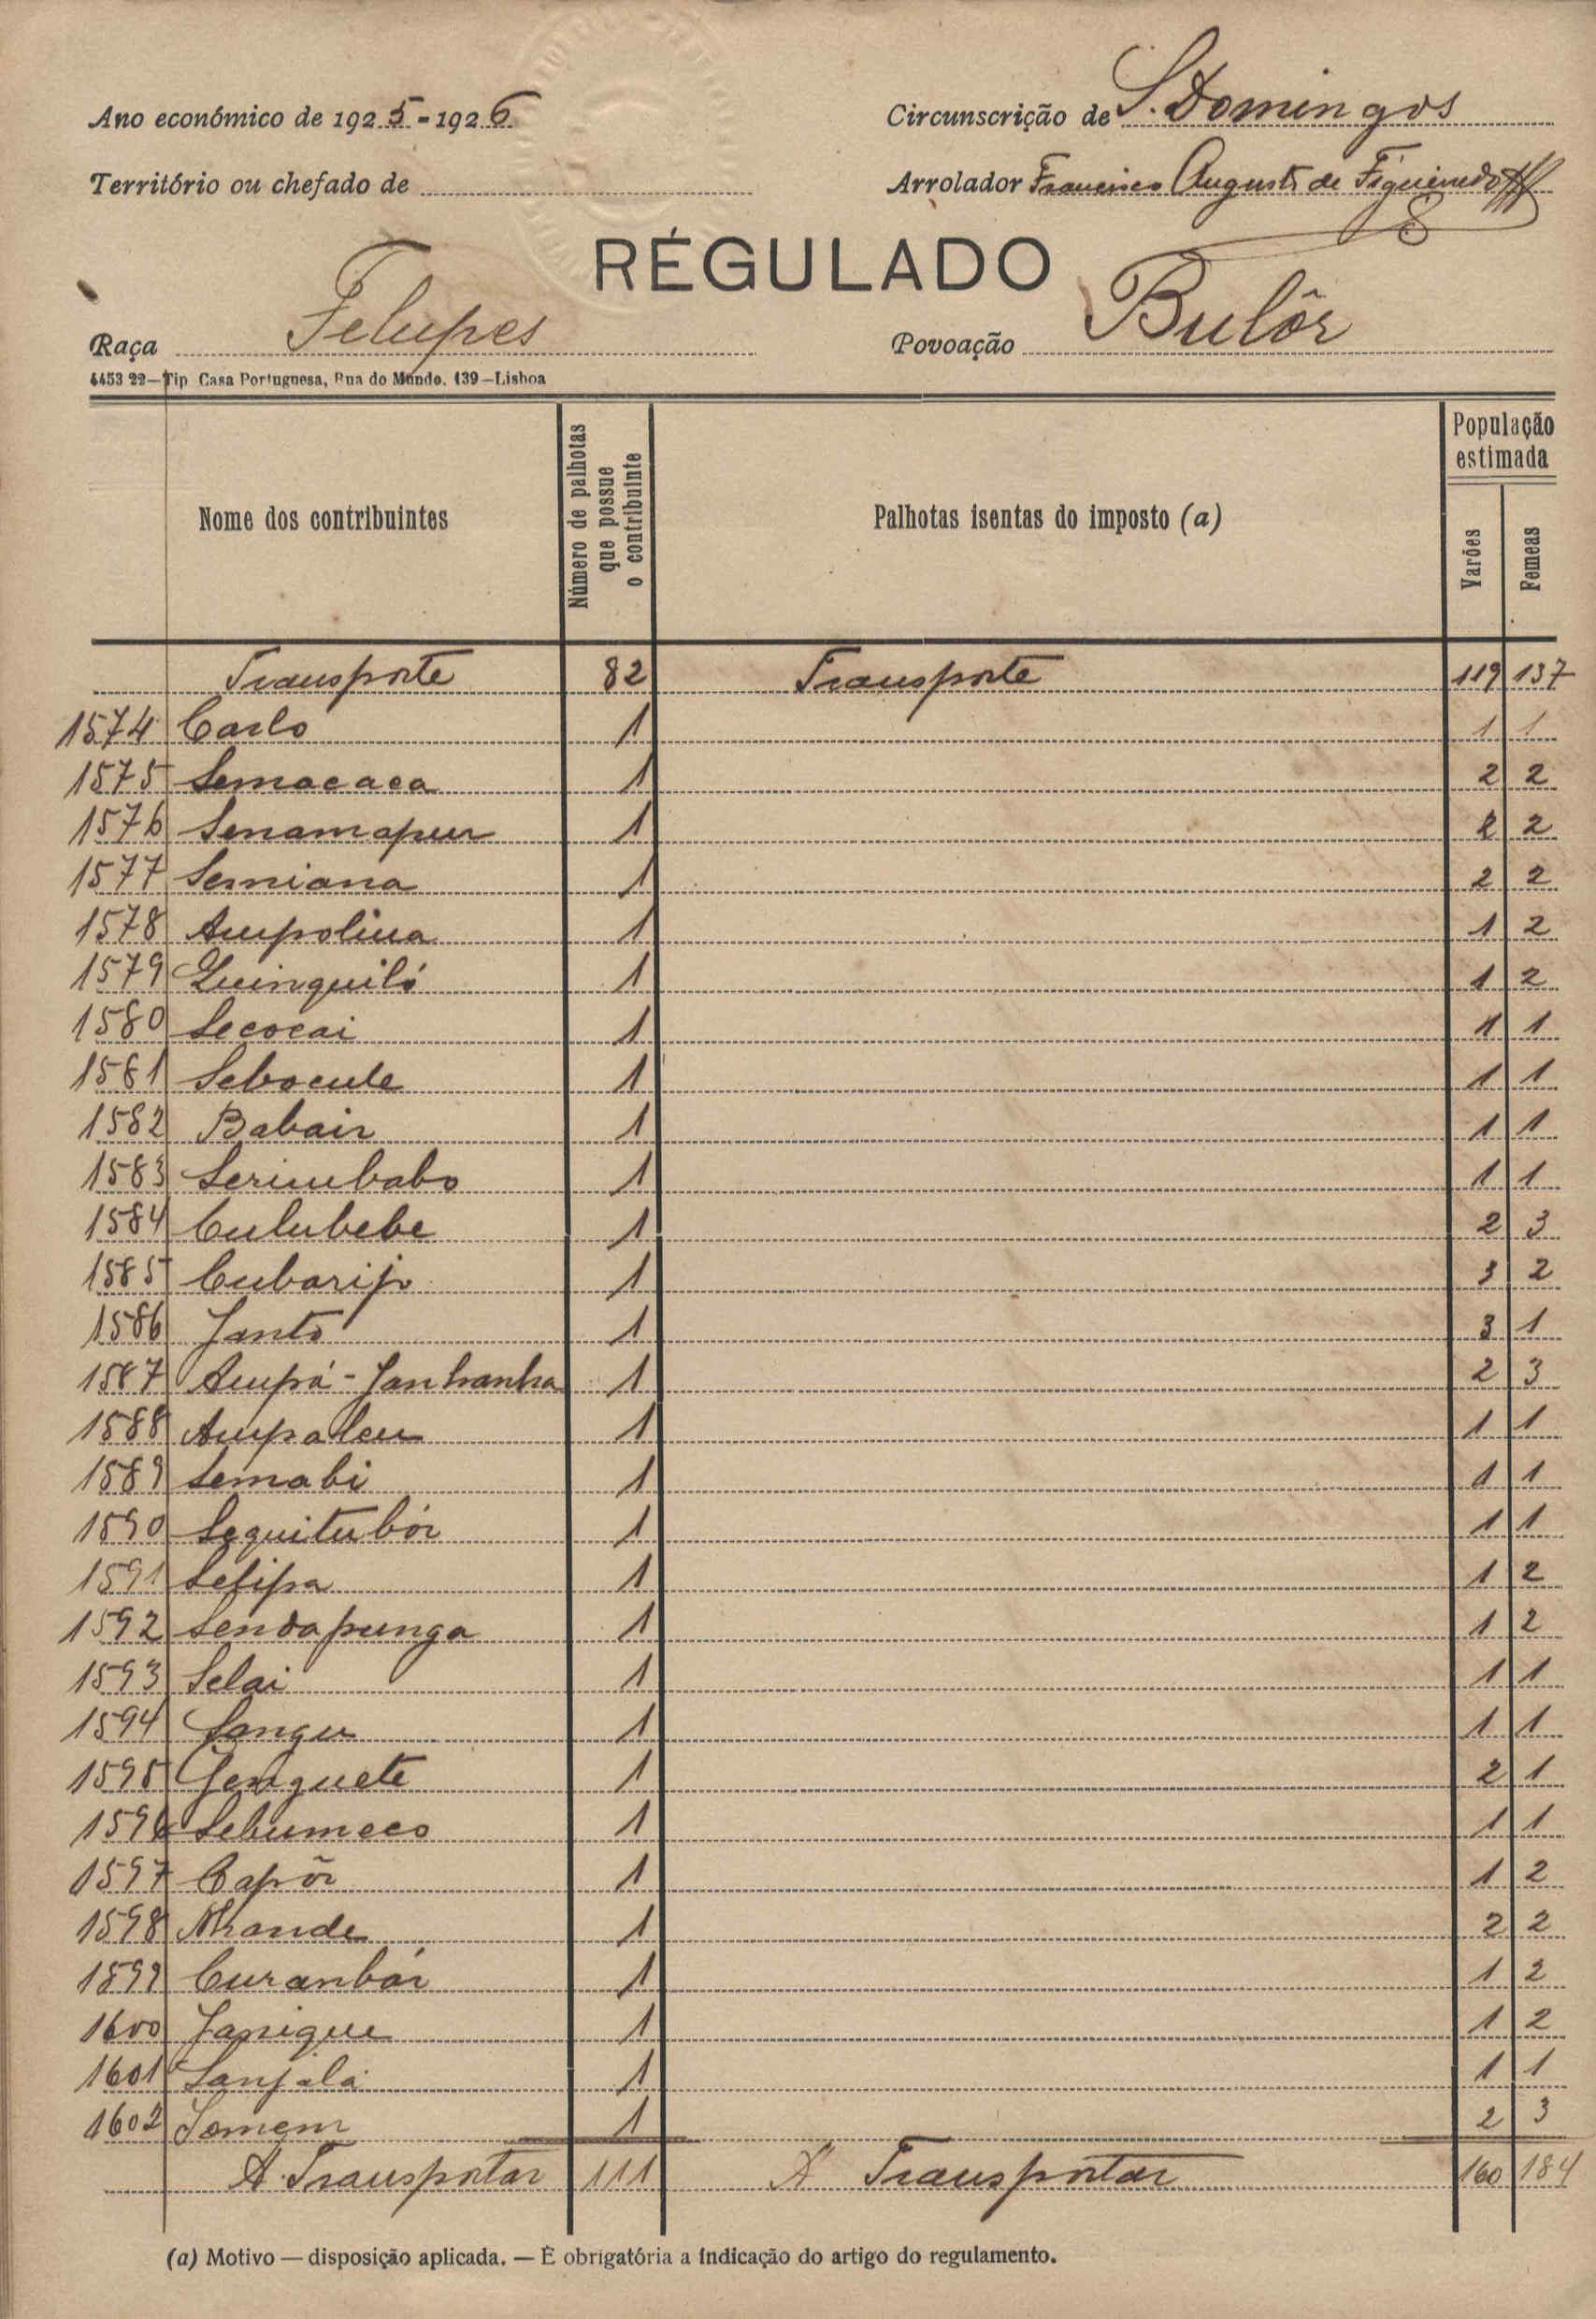 Ano económico de 1925-1926
Circunscrição de S. Domingos
Território ou chefado de
Arrolador Francisco Augusto de Figueiredo
RÉGULADO
Raça Felupes
Povoação Bulôr
4453 22—Tip Casa Portuguesa, Rua do Mundo. 139—Lisboa
Nome dos contribuintes
Número de palhotas que possue o contribuinte
Palhotas isentas do imposto (a)
População estimada
Varões
Femeas
Transporte 82 Transporte 119 137
1574 Carlo 1 1 1
1575 Semacaca 1 2 2
1576 Senamapur 1 2 2
1577 Semiana 1 2 2
1578 Ampolina 1 1 2
1579 Quinquiló 1 1 2
1580 Secocai 1 1 1
1581 Sebocule 1 1 1
1582 Babair 1 1 1
1583 Serimbabo 1 1 1
1584 Culubebe 1 2 3
1585 Cubarip 1 3 2
1586 Jantó 1 3 1
1587 Ampá-Janhanha 1 2 3
1588 Ampaleu 1 1 1
1589 Semabi 1 1 1
1590 Sequitubór 1 1 1
1591 Sefipa 1 1 2
1592 Sendapunga 1 1 2
1593 Selai 1 1 1
1594 Sangu 1 1 1
1595 Jenguete 1 2 1
1596 Sebumeco 1 1 1
1597 Capôr 1 1 2
1598 Nhande 1 2 2
1599 Curanbár 1 1 2
1600 Janique 1 1 2
1601 Sanjalá 1 1 1
1602 Jomem 1 2 3
A Transportar 111 A Transportar 160 184
(a) Motivo — disposição aplicada. — É obrigatória a indicação do artigo do regulamento.